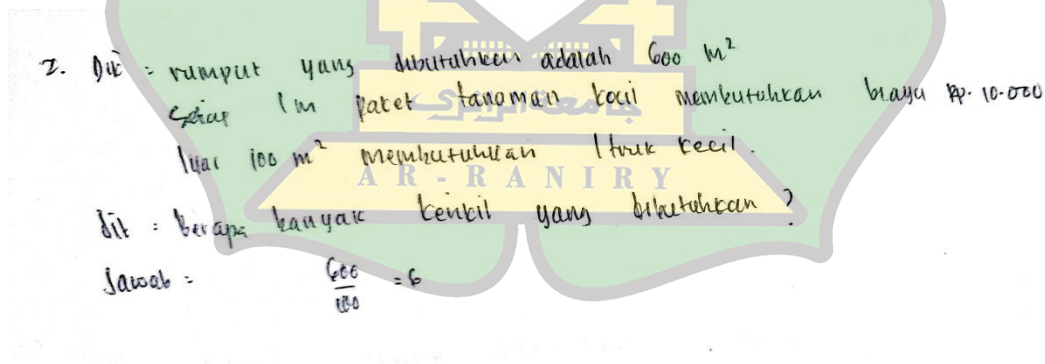 2. Dik = rumput yang dibutuhkan adalah 600 m²
Setiap 1 m paket tanaman kecil membutuhkan biaya Rp. 10.000
جامعة الرانري
luas 100 m² membutuhkan 1 truk kecil.
AR-RANIRY
dit = berapa banyak kerikil yang dibutuhkan?
Jawab = 600/100 = 6